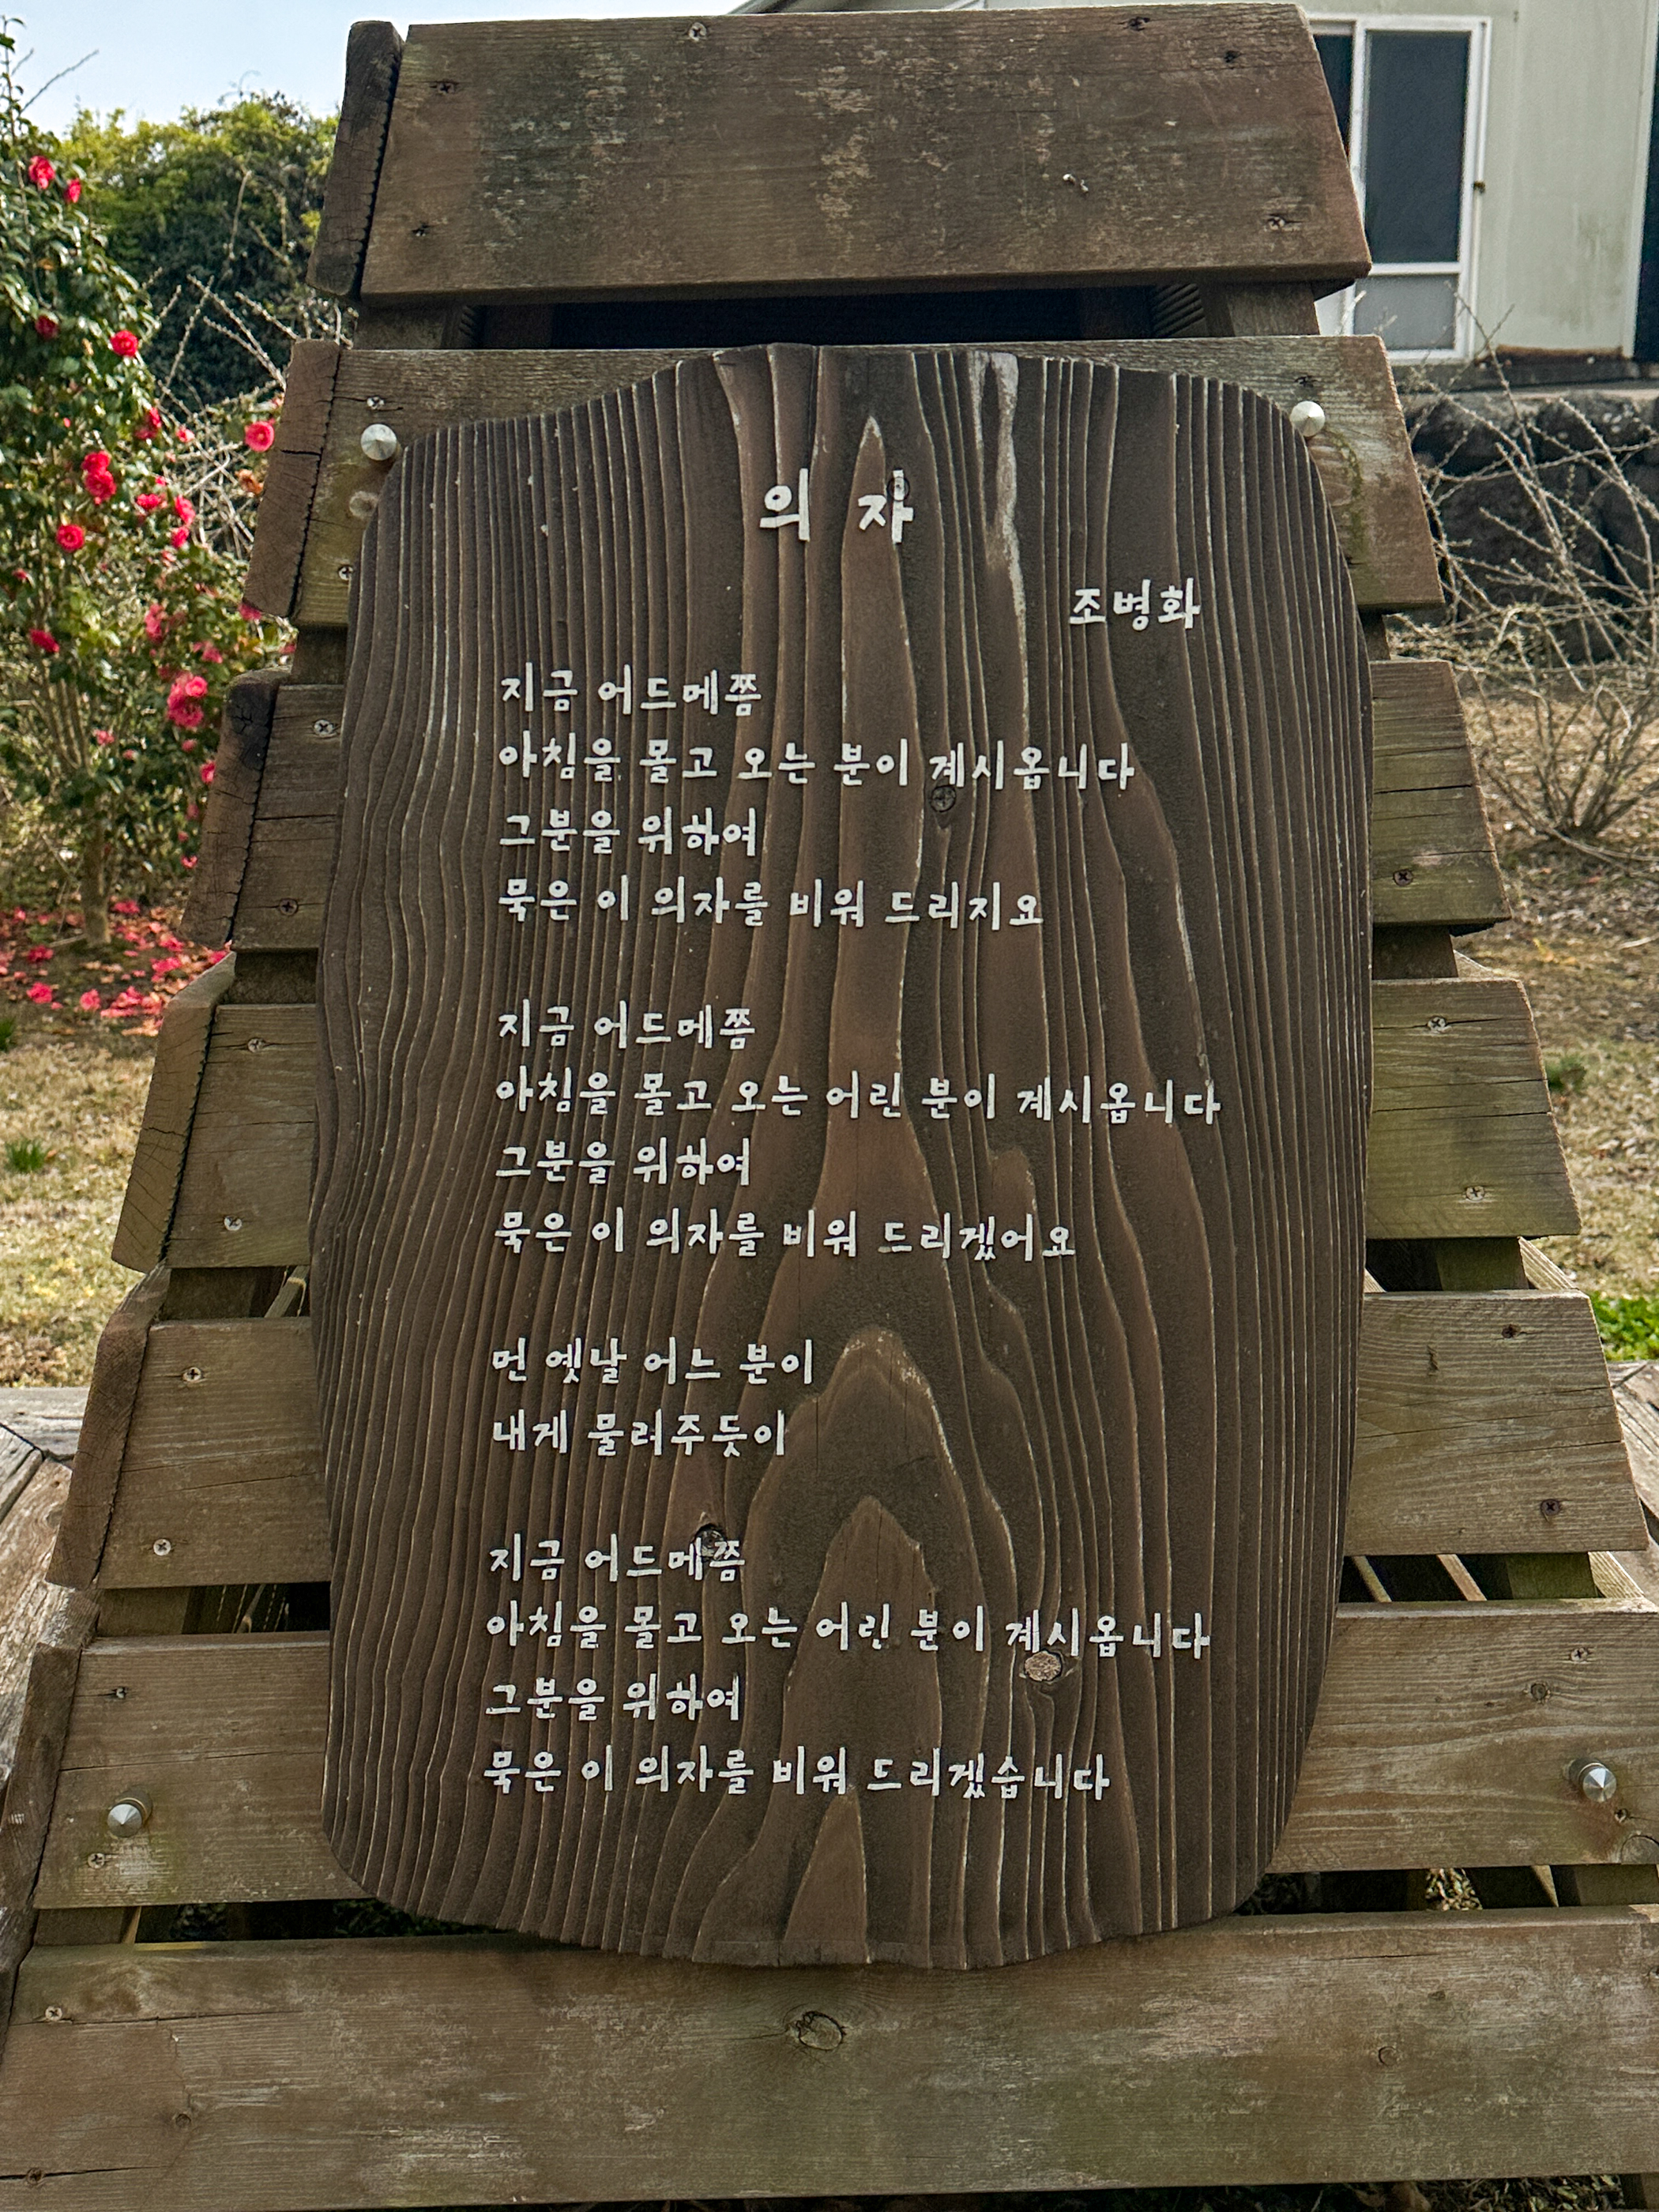 의 자
조병화
지금 어드메쯤
아침을 몰고 오는 분이 계시옵니다
그분을 위하여
묵은 이 의자를 비워 드리지요
지금 어드메쯤
아침을 몰고 오는 어린 분이 계시옵니다
그분을 위하여
묵은 이 의자를 비워 드리겠어요
먼 옛날 어느 분이
내게 물려주듯이
지금 어드메쯤
아침을 몰고 오는 어린 분이 계시옵니다
그분을 위하여
묵은 이 의자를 비워 드리겠습니다